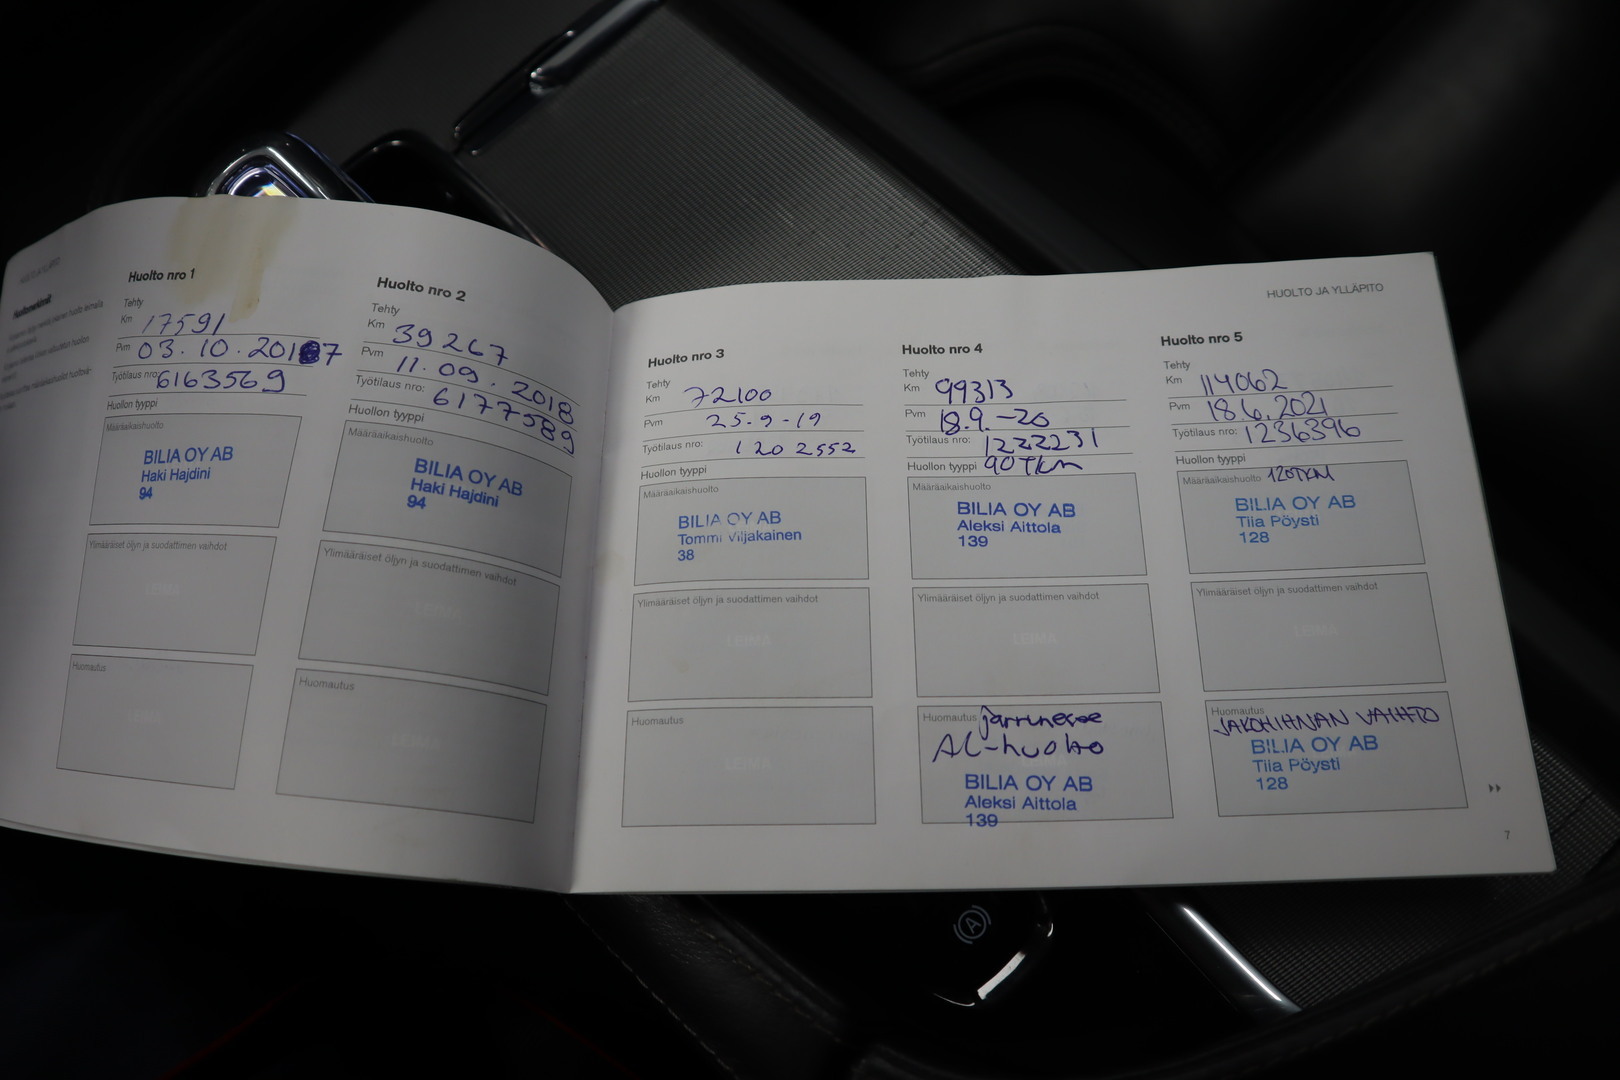 HUOLTO JA YLLÄPITO
Huolto nro 1
Tehty
Km 17591
Pvm 03.10.2017
Työtilaus nro: 6163569
Huollon tyyppi
Määräaikaishuolto
BILIA OY AB
Haki Hajdini
94
Ylimääräiset öljyn ja suodattimen vaihdot
LEIMA
Huomautus
LEIMA
Huolto nro 2
Tehty
Km 39267
Pvm 11.09.2018
Työtilaus nro: 6177589
Huollon tyyppi
Määräaikaishuolto
BILIA OY AB
Haki Hajdini
94
Ylimääräiset öljyn ja suodattimen vaihdot
LEIMA
Huomautus
LEIMA
HUOLTO JA YLLÄPITO
Huolto nro 3
Tehty
Km 72100
Pvm 25-9-19
Työtilaus nro: 1202552
Huollon tyyppi
Määräaikaishuolto
BILIA OY AB
Tommi Viljakainen
38
Ylimääräiset öljyn ja suodattimen vaihdot
LEIMA
Huomautus
LEIMA
Huolto nro 4
Tehty
Km 99313
Pvm 18.9.-20
Työtilaus nro: 1222231
Huollon tyyppi 90Tkm
Määräaikaishuolto
BILIA OY AB
Aleksi Aittola
139
Ylimääräiset öljyn ja suodattimen vaihdot
LEIMA
Huomautus jarruneste
AC-huolto
LEIMA
BILIA OY AB
Aleksi Aittola
139
Huolto nro 5
Tehty
Km 114062
Pvm 18.6.2021
Työtilaus nro: 1236396
Huollon tyyppi
Määräaikaishuolto 120TKM
BILIA OY AB
Tiia Pöysti
128
Ylimääräiset öljyn ja suodattimen vaihdot
LEIMA
Huomautus
JAKOHIHNAN VAIHTO
BILIA OY AB
Tiia Pöysti
128
7
A